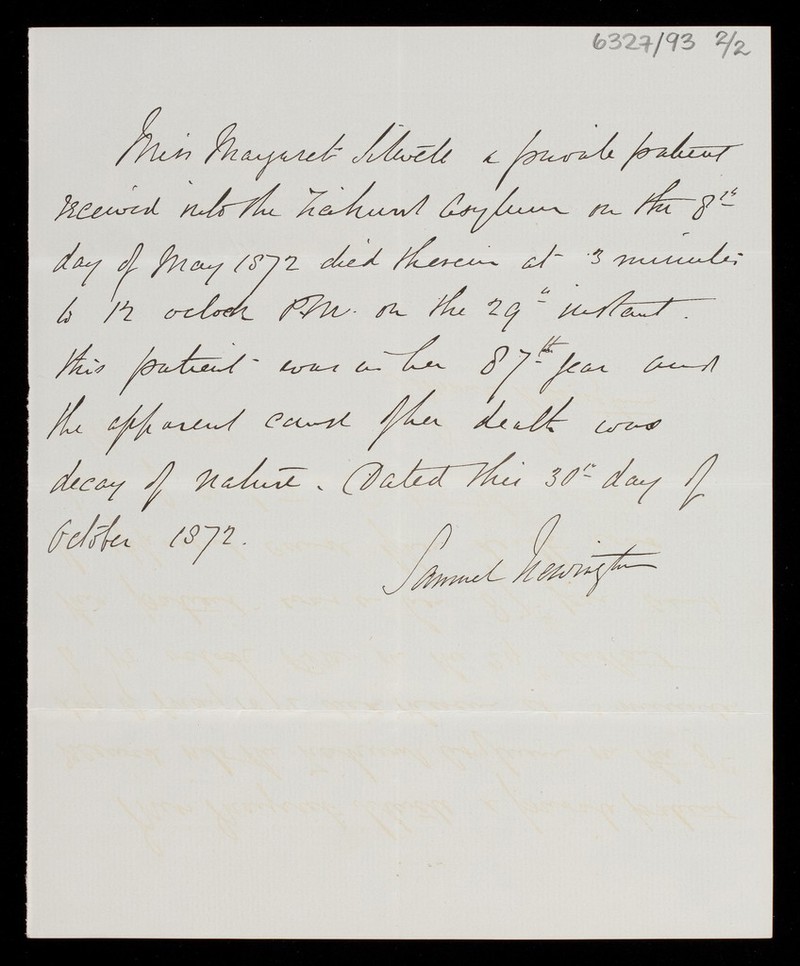 6327/93 2/2
Miss Margaret Sitwell a private patient
received into the Ticehurst Asylum on the 8th
day of May 1872 died therein at 3 minutes
to 12 oclock P.M. on the 29th instant.
this patient was in her 87th year and
the apparent cause of her death was
decay of nature. Dated this 30th day of
October 1872.
Samuel Newington